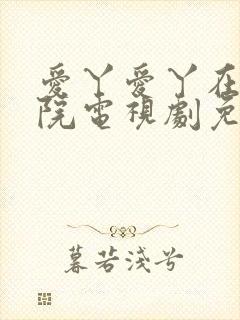 愛丫愛丫在
院電視劇免
暮若淺兮